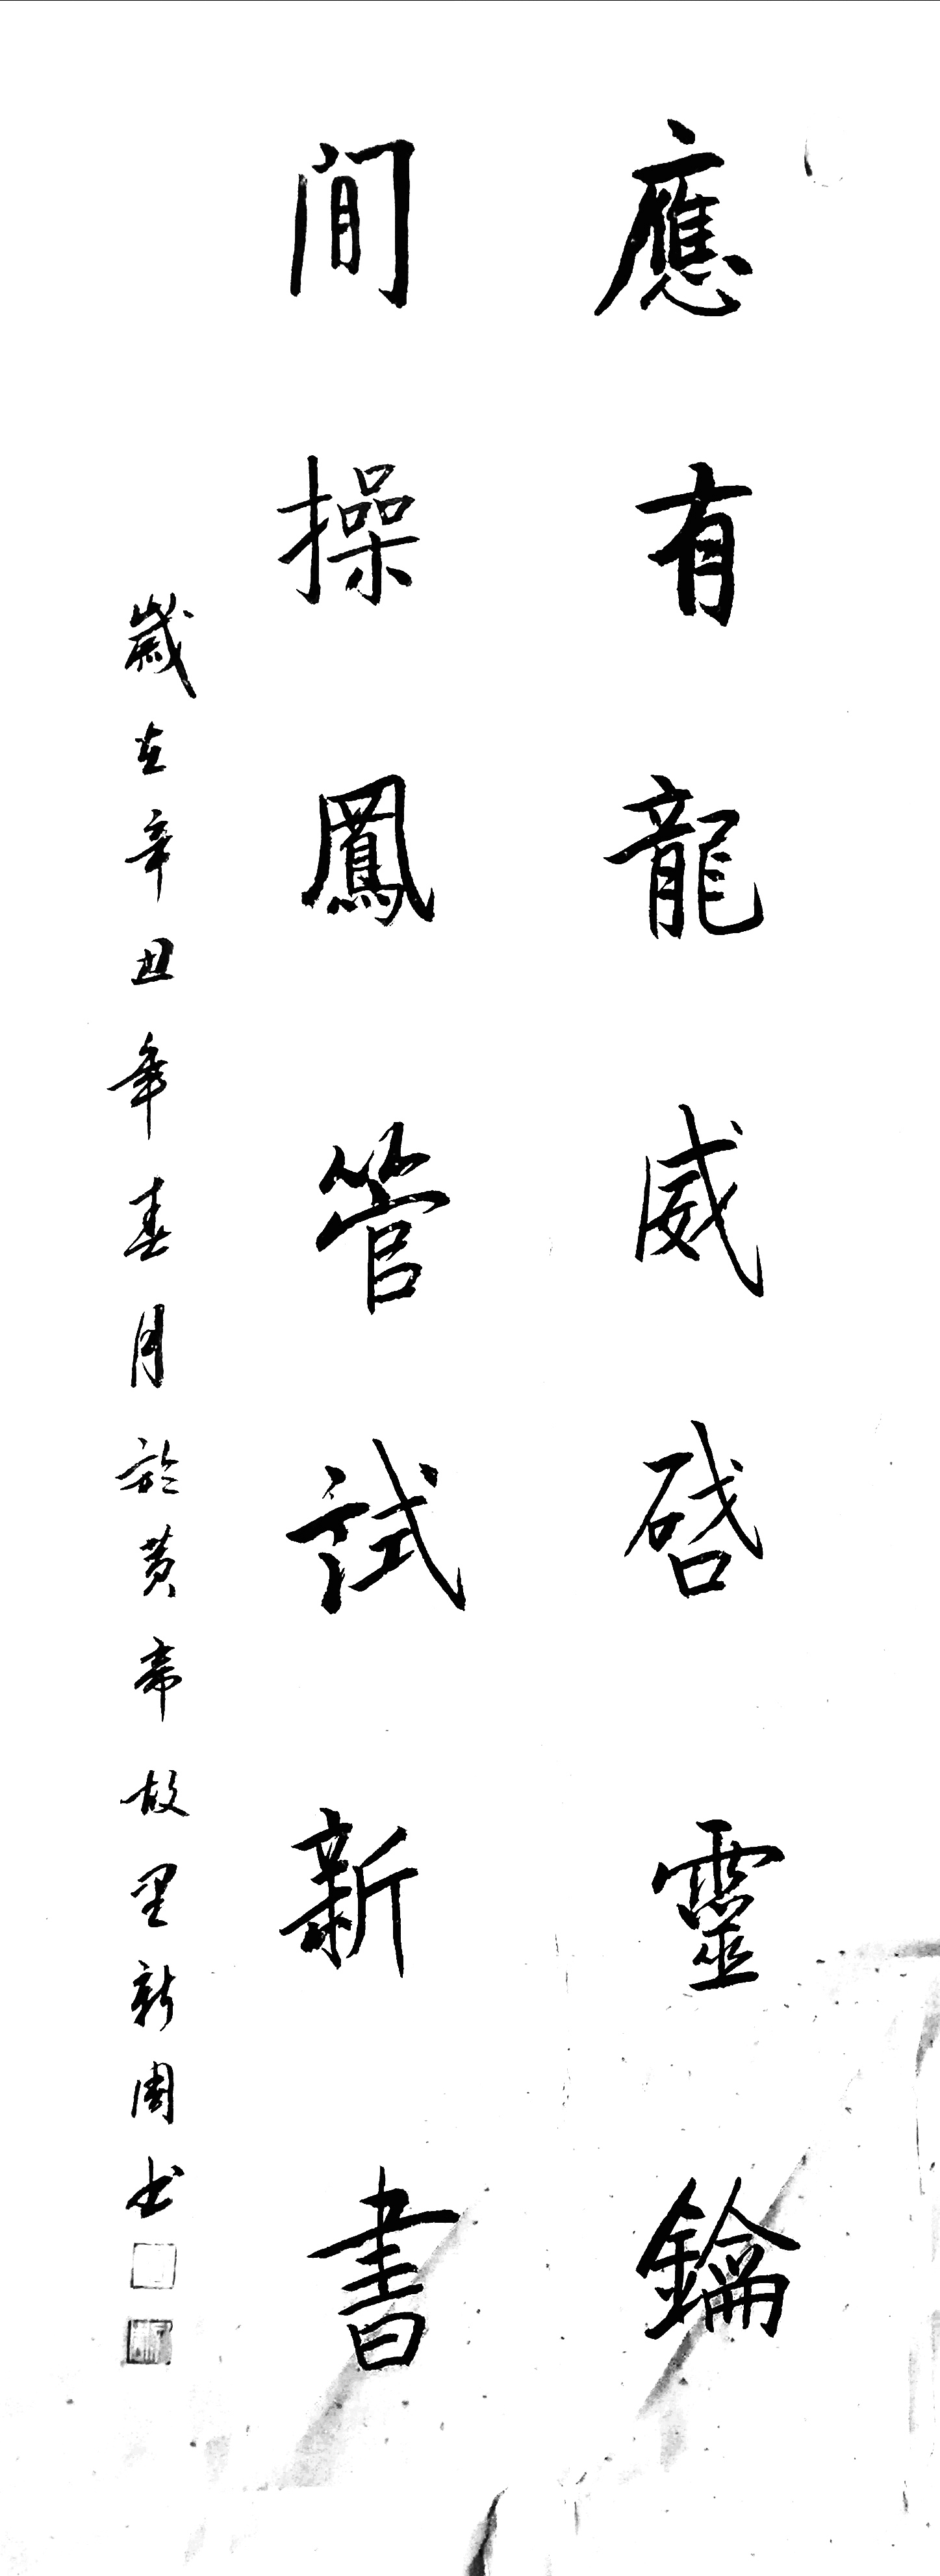 應有龍威啓靈鑰
間操鳳管試新書
歲在辛丑年春月於黄帝故里新周书